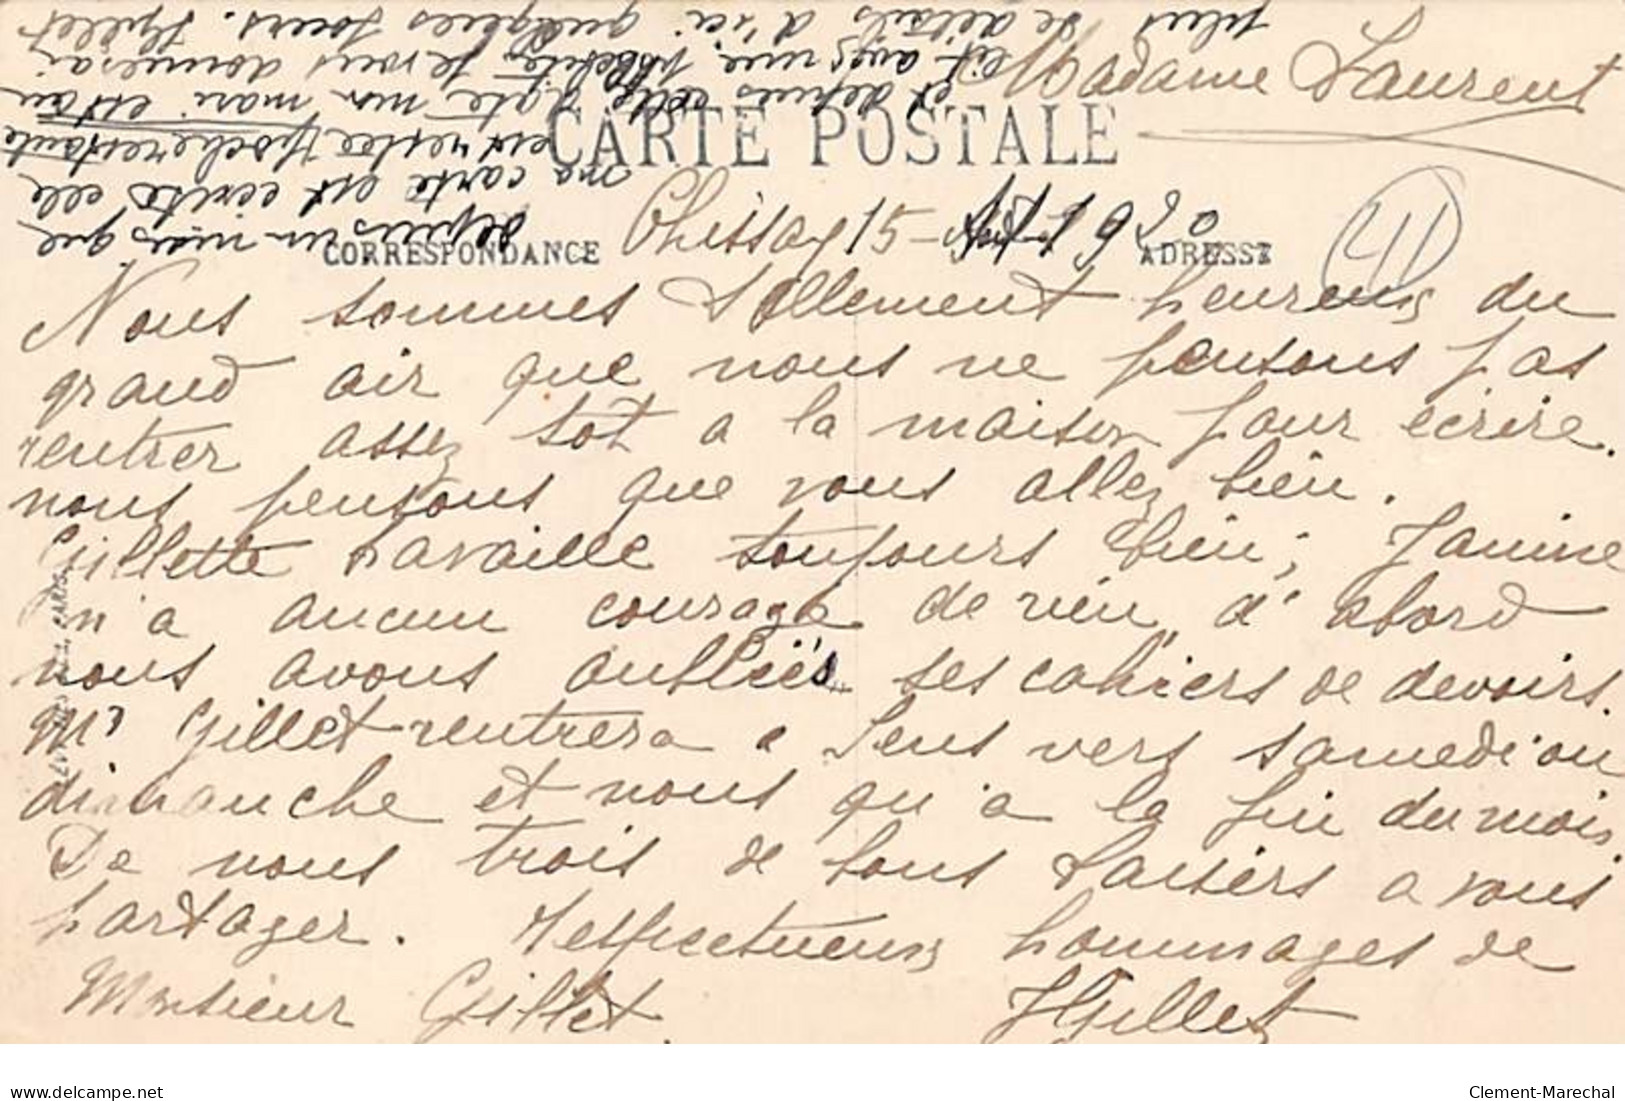 Madame Laurent
CARTE POSTALE
Chissay 15 - 1930
CORRESPONDANCE
ADRESSE
41
Nous sommes tellement heureux du
grand air que nous ne pensons pas
rentrer assez tôt a la maison pour écrire.
nous pensons que vous allez bien.
Gillette travaille toujours bien; Janine
n'a aucun courage de rien d'abord
nous avons oubliés ses cahiers de devoirs.
Mr Gillet rentrera a Sens vers samedi ou
dimanche et nous qu'a la fin du mois
De nous trois de bons baisers a vous
partager. respectueux hommages de
Monsieur Gillet. HGillet
depuis un mois que
ma carte est ecrite elle
est restée
et depuis cette date mon mari est au
lit avec une je vous donnerai
plus de details d'ici quelques jours. HGillet
delcampe.net
Clement-Marechal